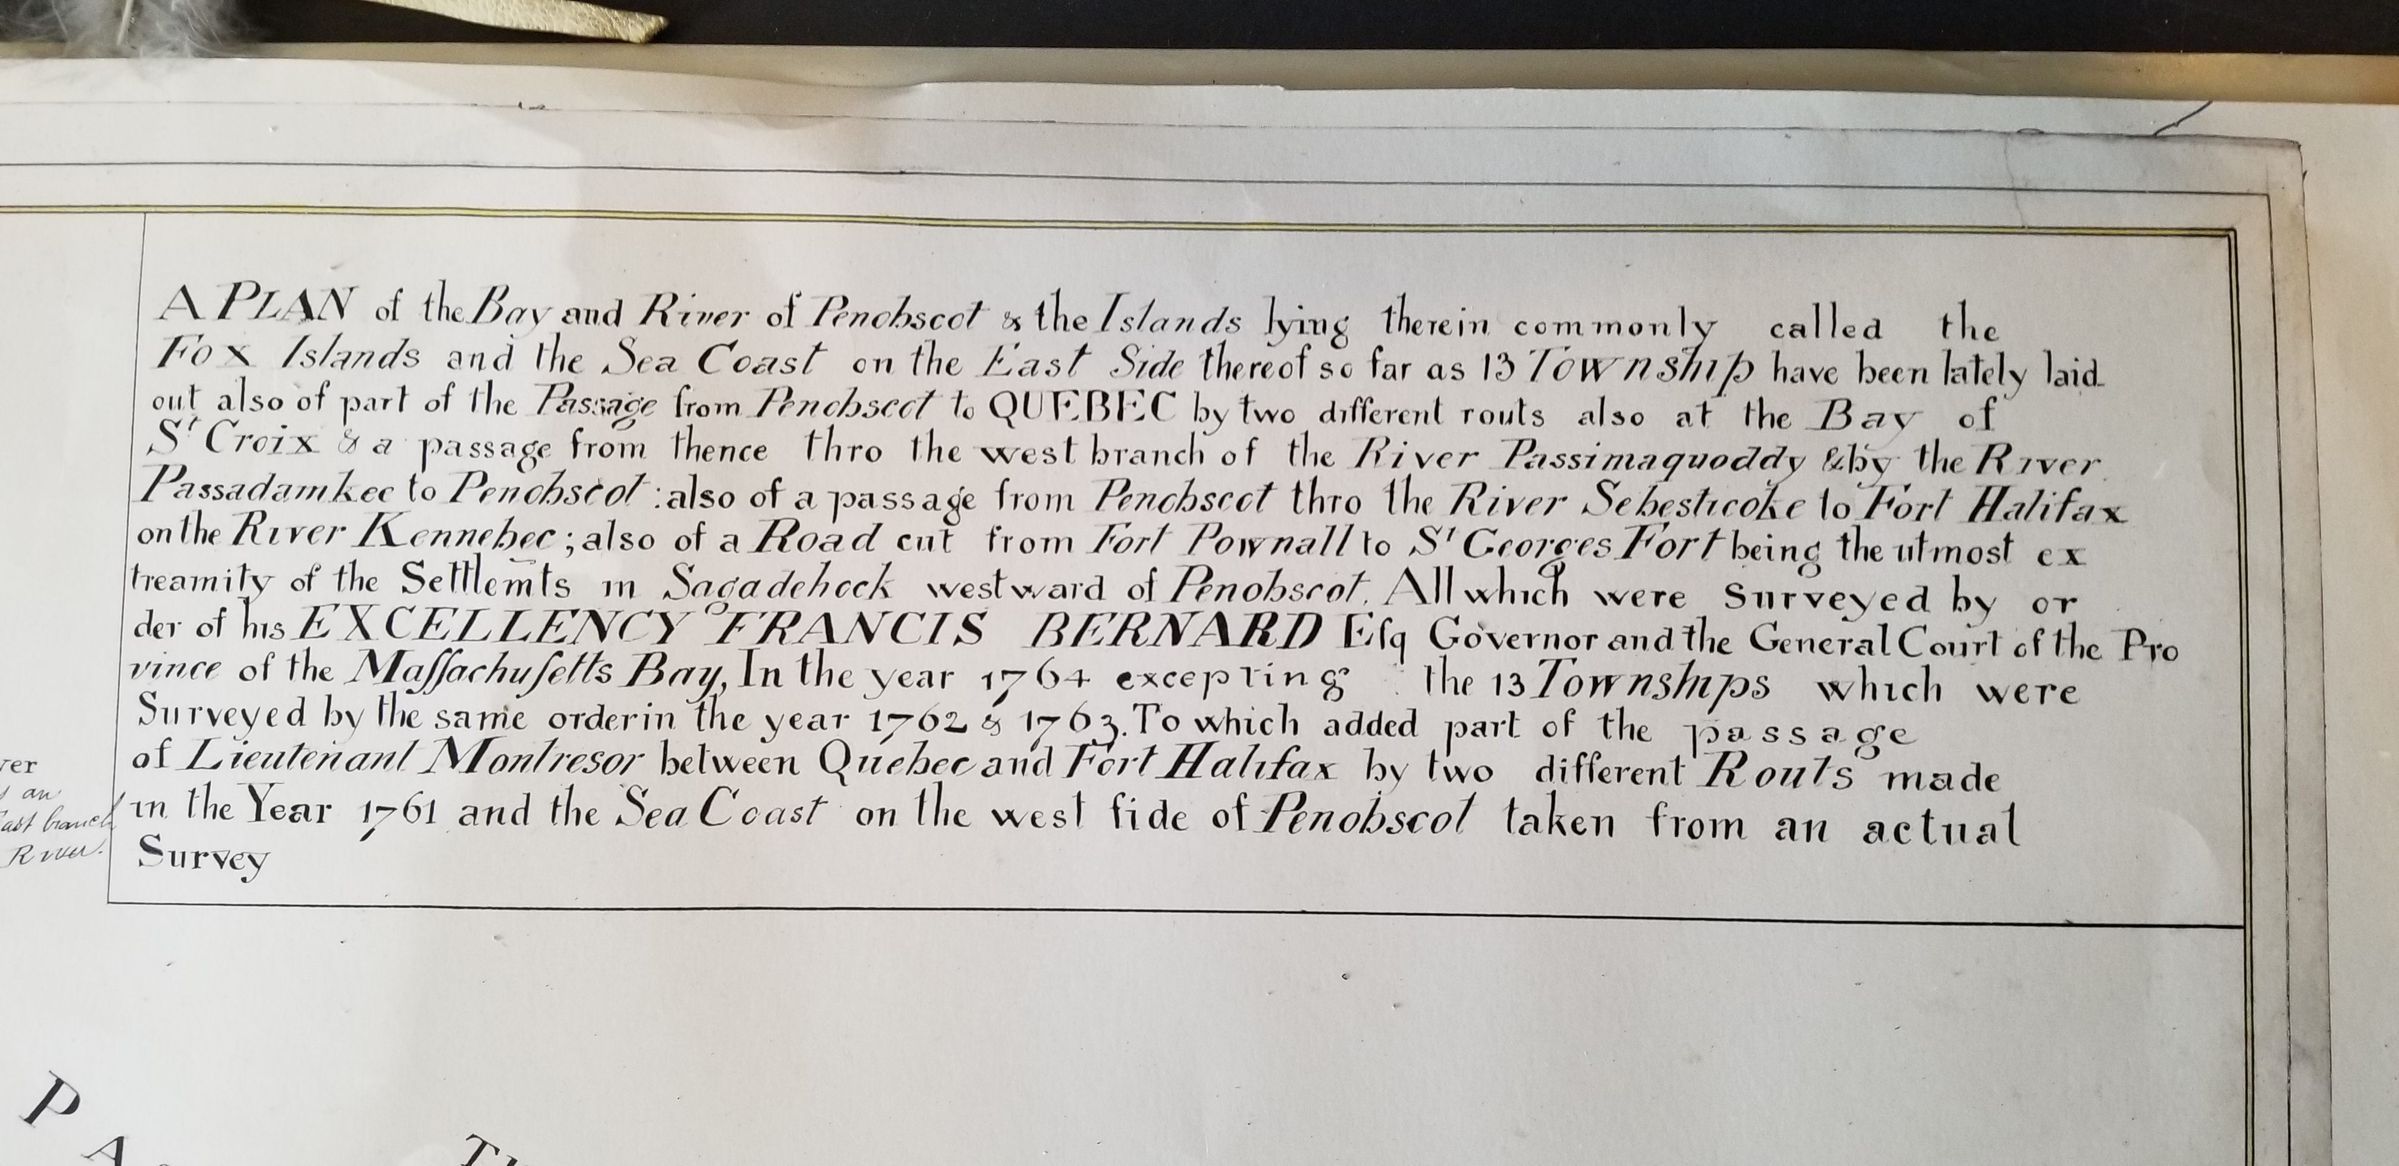 A PLAN of the Bay and River of Penobscot & the Islands lying therein commonly called the
Fox Islands and the Sea Coast on the East Side thereof so far as 13 Township have been lately laid
out also of part of the Passage from Penobscot to QUEBEC by two different routs also at the Bay of
St Croix & a passage from thence thro the west branch of the River Passimaquoddy & by the River
Passadamkec to Penobscot : also of a passage from Penobscot thro the River Sebesticoke to Fort Halifax
on the River Kennebec ; also of a Road cut from Fort Pownall to St Georges Fort being the utmost ex
treamity of the Settlemts in Sagadehock westward of Penobscot. All which were Surveyed by or
der of his EXCELLENCY FRANCIS BERNARD Eſq Governor and the General Court of the Pro
vince of the Maſſachuſetts Bay, In the year 1764 excepting the 13 Townships which were
Surveyed by the same order in the year 1762 & 1763. To which added part of the passage
of Lieutenant Montresor between Quebec and Fort Halifax by two different Routs made
in the Year 1761 and the Sea Coast on the west ſide of Penobscot taken from an actual
Survey
an
East branch
River.
P
A